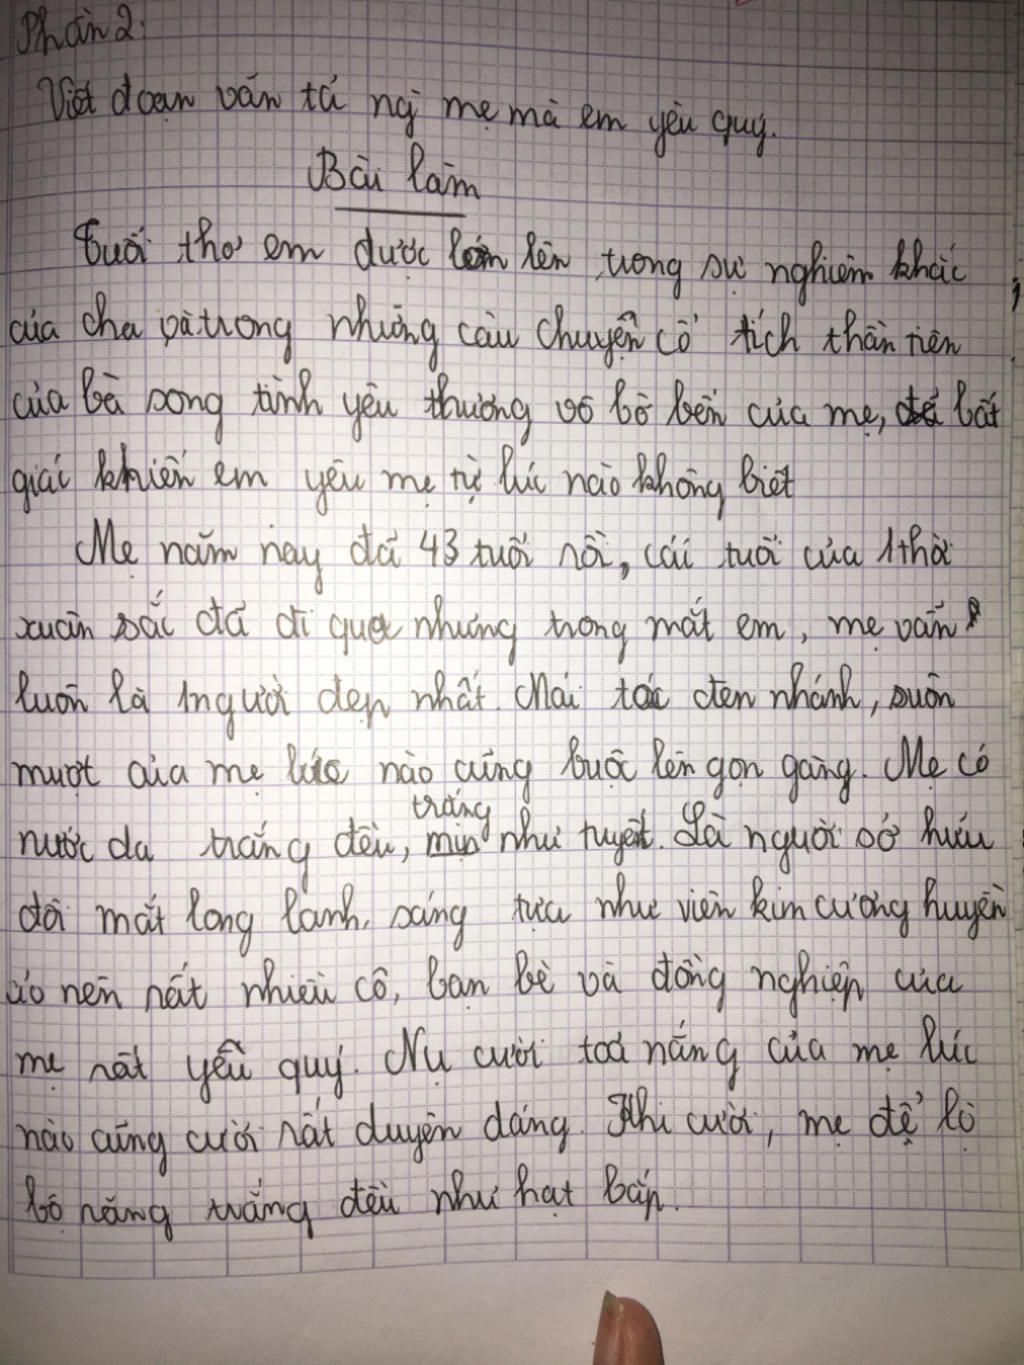 Phần 2:
Viết đoạn văn tả ng mẹ mà em yêu quý.
Bài làm
Tuổi thơ em được lớn lên trong sự nghiêm khắc
của cha và trong những câu chuyện cổ tích thần tiên
của bà song tình yêu thương vô bờ bến của mẹ, đã bất
giác khiến em yêu mẹ từ lúc nào không biết
Mẹ năm nay đã 43 tuổi rồi, cái tuổi của 1 thời
xuân sắc đã đi qua nhưng trong mắt em, mẹ vẫn
luôn là 1 người đẹp nhất. Mái tóc đen nhánh, suôn
mượt của mẹ lúc nào cũng buộc lên gọn gàng. Mẹ có
trắng
nước da trắng đều, mịn như tuyết. Là người sở hữu
đôi mắt long lanh, sáng tựa như viên kim cương huyền
ảo nên rất nhiều cô, bạn bè và đồng nghiệp của
mẹ rất yêu quý. Nụ cười toả nắng của mẹ lúc
nào cũng cười rất duyên dáng. Khi cười, mẹ để lộ
bộ răng trắng đều như hạt bắp.